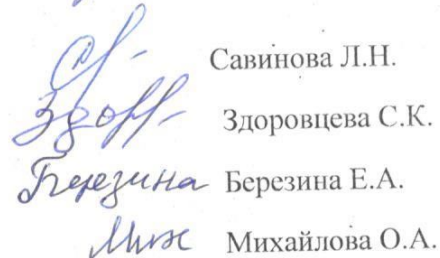 Савинова Л.Н.
Здоровцева С.К.
Березина Березина Е.А.
Михайлова О.А.